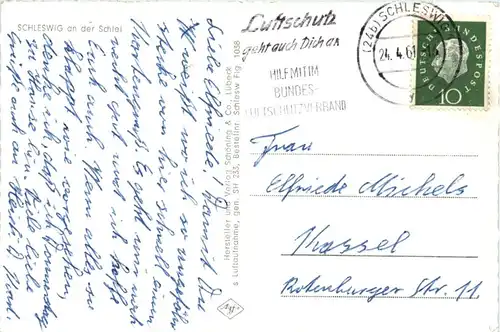 SCHLESWIG an der Schlei
Liebe Elfriede, Damit Du
weißt wo ich so ungefähr
stecke von hier schnell einen
Es geht uns noch
gut und ich hoffe
Euch auch. Wenn alles so
klappt wie vorgesehen,
denke ich, daß ich Donnerstag
zu Hause bin. Viele liebe
Grüße auch an
Hersteller und Verlag Schöning & Co., Lübeck
s Luftaufnahme, gen. SH 235, Bestellnr. Schlesw Flg 1038
Agfa
Luftschutz
geht auch Dich an
HILF MIT IM
BUNDES-
LUFTSCHUTZVERBAND
(24b) SCHLESWIG
24.4.61
DEUTSCHE BUNDESPOST
10
Frau
Elfriede Michels
Kassel
Rotenburger Str. 11